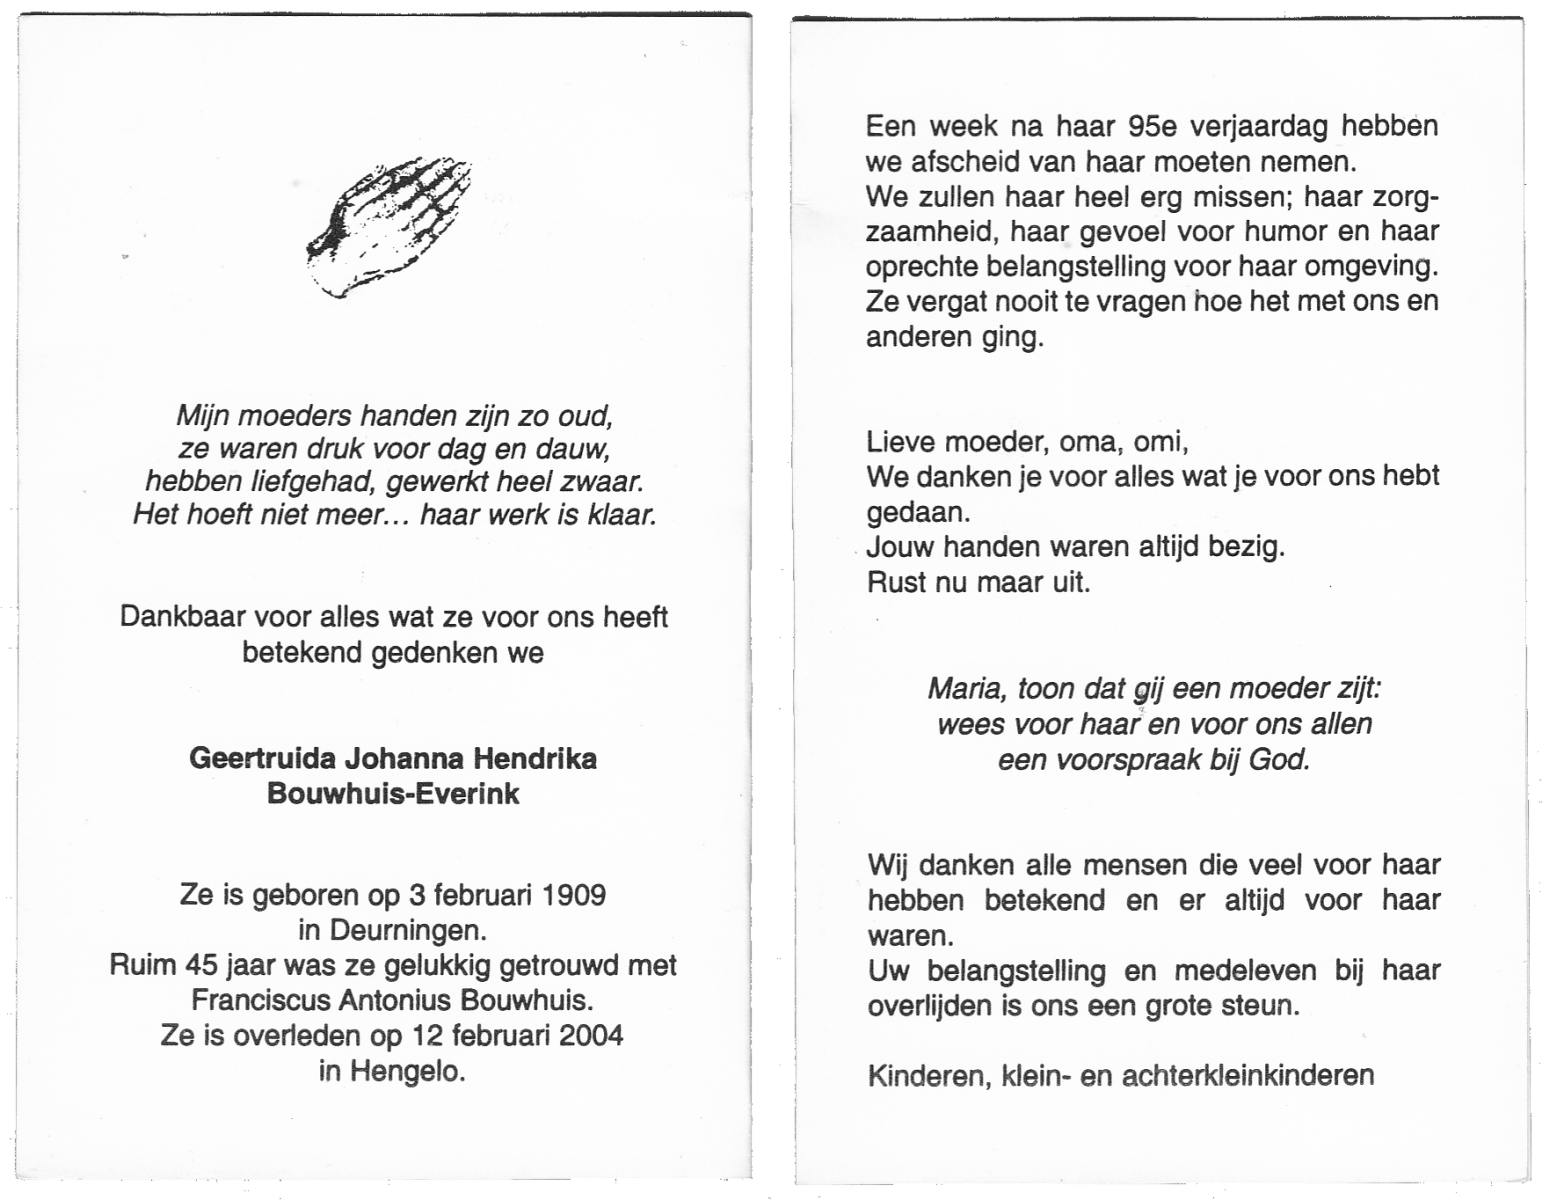 Mijn moeders handen zijn zo oud,
ze waren druk voor dag en dauw,
hebben liefgehad, gewerkt heel zwaar.
Het hoeft niet meer... haar werk is klaar.
Dankbaar voor alles wat ze voor ons heeft
betekend gedenken we
Geertruida Johanna Hendrika
Bouwhuis-Everink
Ze is geboren op 3 februari 1909
in Deurningen.
Ruim 45 jaar was ze gelukkig getrouwd met
Franciscus Antonius Bouwhuis.
Ze is overleden op 12 februari 2004
in Hengelo.
Een week na haar 95e verjaardag hebben
we afscheid van haar moeten nemen.
We zullen haar heel erg missen; haar zorg-
zaamheid, haar gevoel voor humor en haar
oprechte belangstelling voor haar omgeving.
Ze vergat nooit te vragen hoe het met ons en
anderen ging.
Lieve moeder, oma, omi,
We danken je voor alles wat je voor ons hebt
gedaan.
Jouw handen waren altijd bezig.
Rust nu maar uit.
Maria, toon dat gij een moeder zijt:
wees voor haar en voor ons allen
een voorspraak bij God.
Wij danken alle mensen die veel voor haar
hebben betekend en er altijd voor haar
waren.
Uw belangstelling en medeleven bij haar
overlijden is ons een grote steun.
Kinderen, klein- en achterkleinkinderen